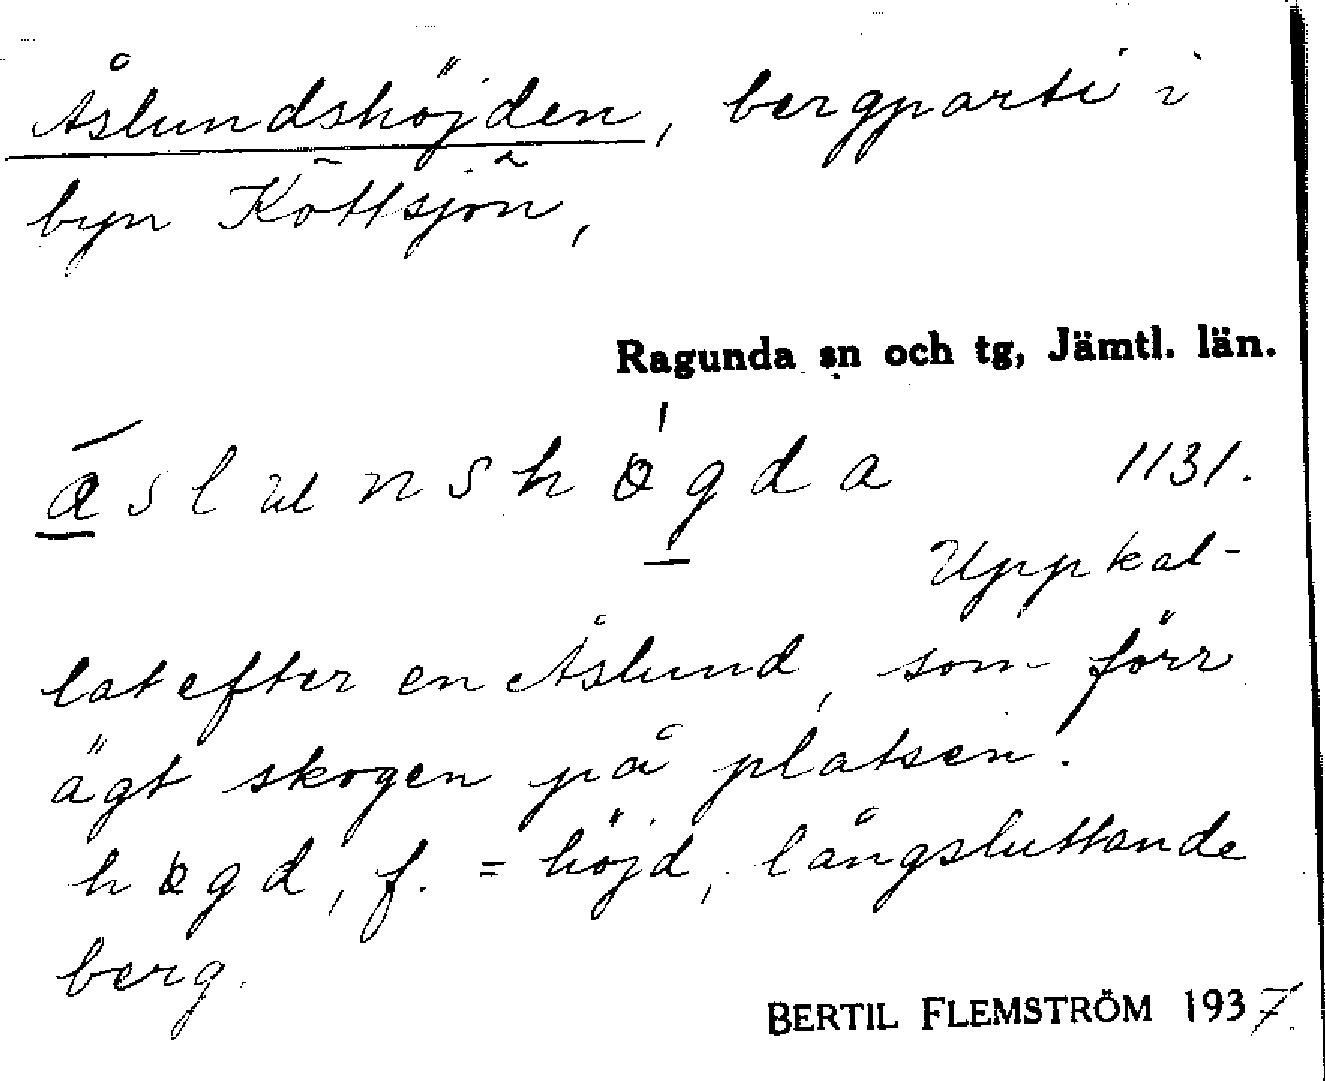 Åslundshöjden, bergparti i
byn Köttsjön,
Ragunda sn och tg, Jämtl. län.
åslunshögda 1131.
Uppkal-
lat efter en Åslund, som förr
ägt skogen på platsen.
högd, f. = höjd, långsluttande
berg.
BERTIL FLEMSTRÖM 1937.